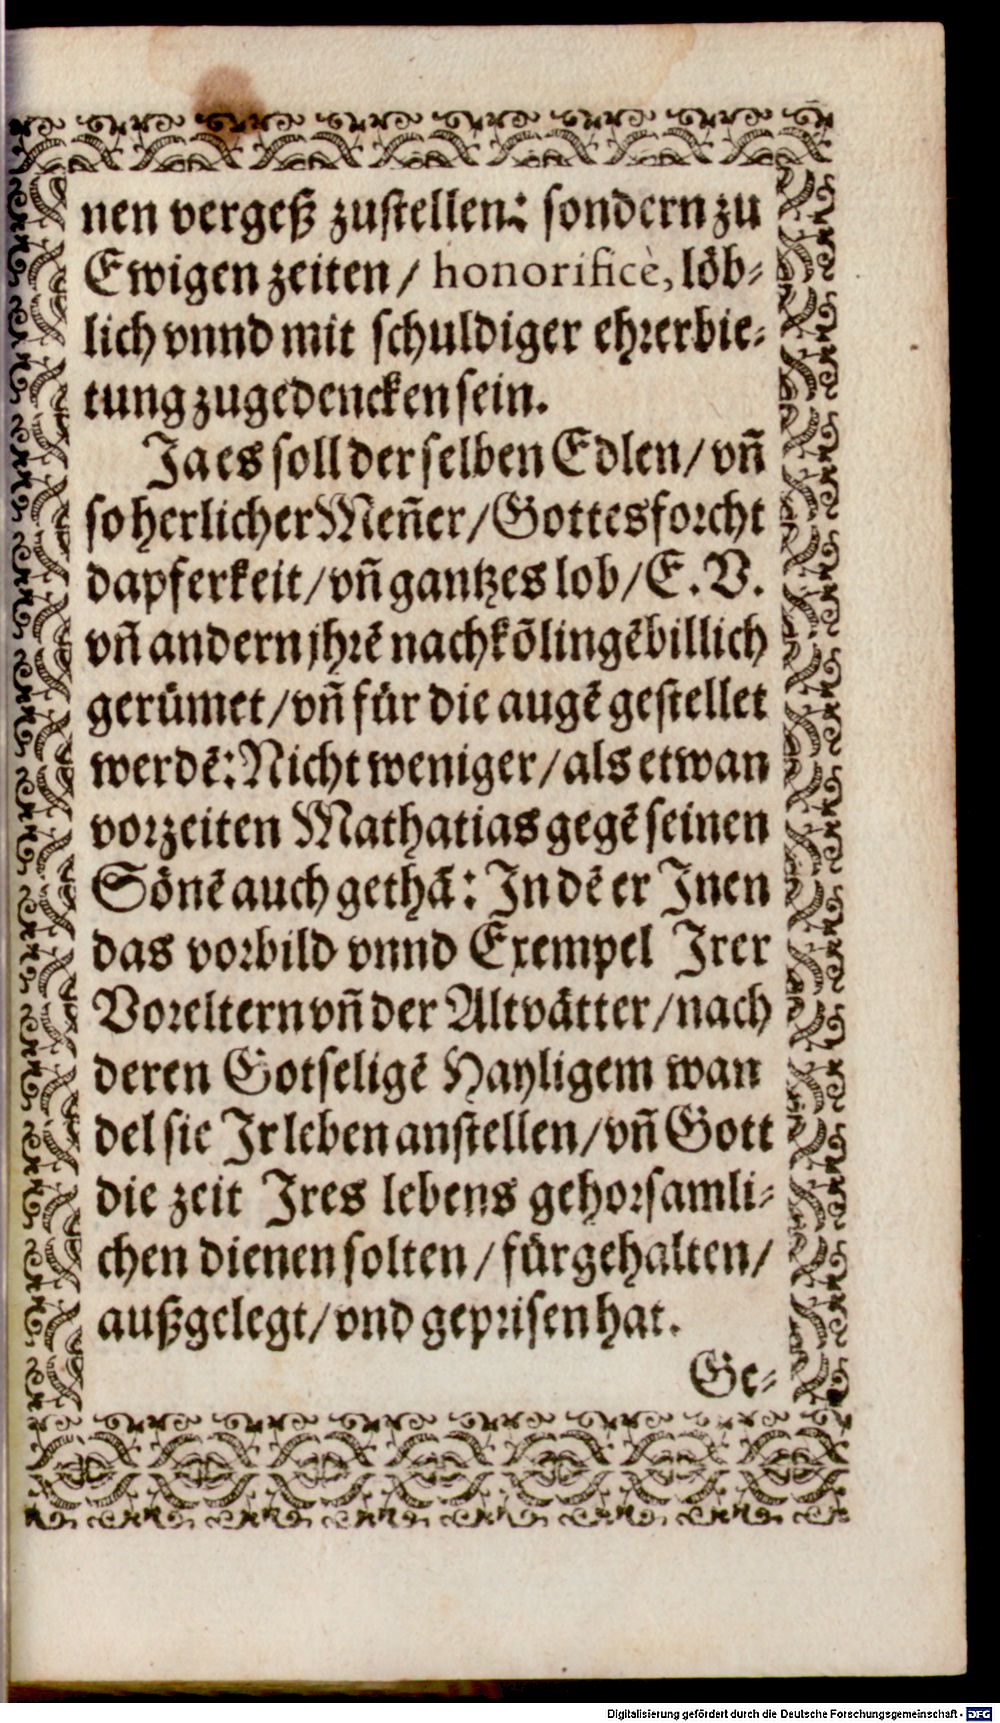 nen vergeß zustellen: sondern zu
Ewigen zeiten / honorificè, löb⸗
lich vnnd mit schuldiger ehrerbie⸗
tung zugedencken sein.
Ja es soll derselben Edlen / vñ
so herlicher Meñer / Gottesforcht
dapferkeit / vñ gantzes lob / E. V.
vñ andern jhrē nachkōlingē billich
gerümet / vñ für die augē gestellet
werdē: Nicht weniger / als etwan
vorzeiten Mathatias gegē seinen
Sönē auch gethā: In dē er Inen
das vorbild vnnd Exempel Irer
Voreltern vñ der Altvätter / nach
deren Gotseligē Hayligem wan
del sie Ir leben anstellen / vñ Gott
die zeit Ires lebens gehorsamli⸗
chen dienen solten / fürgehalten /
außgelegt / vnd geprisen hat.
Ge⸗
Digitalisierung gefördert durch die Deutsche Forschungsgemeinschaft - DFG